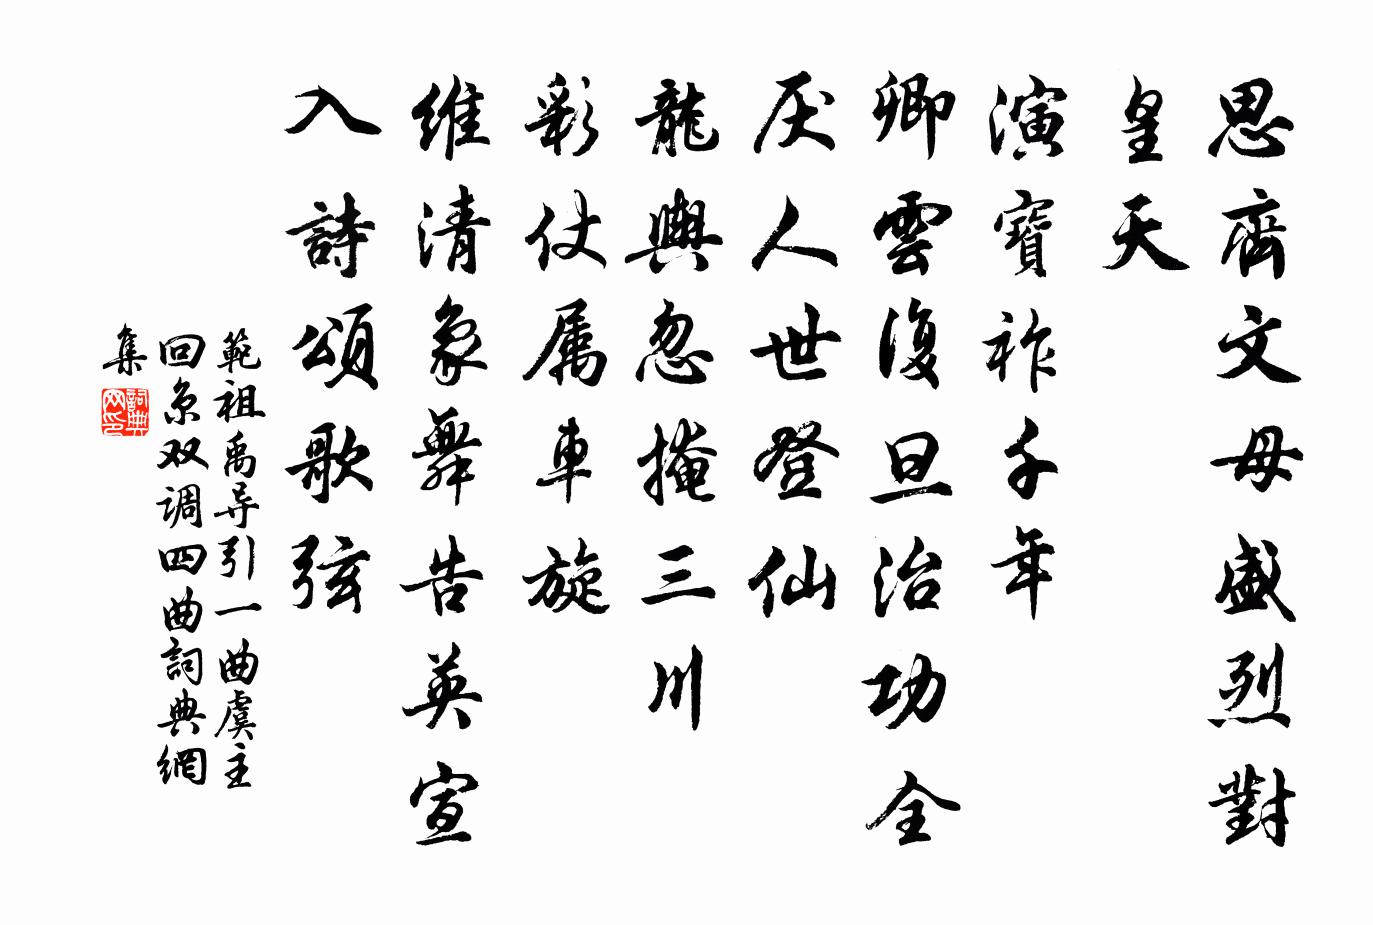 思齊文母盛烈對
皇天
演寶祚千年
卿雲復旦治功全
厌人世登仙
龍輿忽掩三川
彩仗属車旋
維清象舞告英宣
入詩頌歌弦
範祖禹导引一曲虞主
回京双调四曲詞典網
集
詞典網印